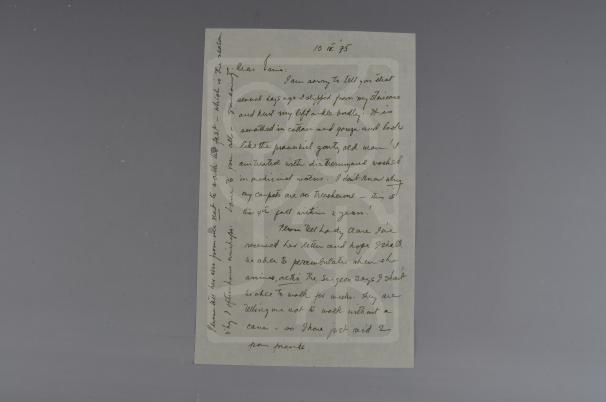 10 IX '75
Dear
I am sorry to tell you that
several days ago I slipped from my staircase
and hurt my left ankle badly. It is
swathed in cotton and gauze and looks
like the proverbial gouty old man. I
am treated with diathermy and washed
in medicinal waters. I don't know why
my carpets are so treacherous – this is
the 4th fall within 2 years!
Please tell Lady Clare I've
received her letter and hope I shall
be able to perambulate when she
arrives, altho the surgeon says I shan't
be able to walk for weeks. They are
telling me not to walk without a
cane – so I have just said 2
from
not to walk fast – which is the reason
why I often have mishaps. Love to you all –